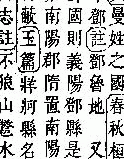 曼姓之國春秋桓
鄧註鄧魯地又
國則義陽鄧縣是
南陽郡隋置南陽
敝玉篇牂牁縣名
志註不狼山鷩水